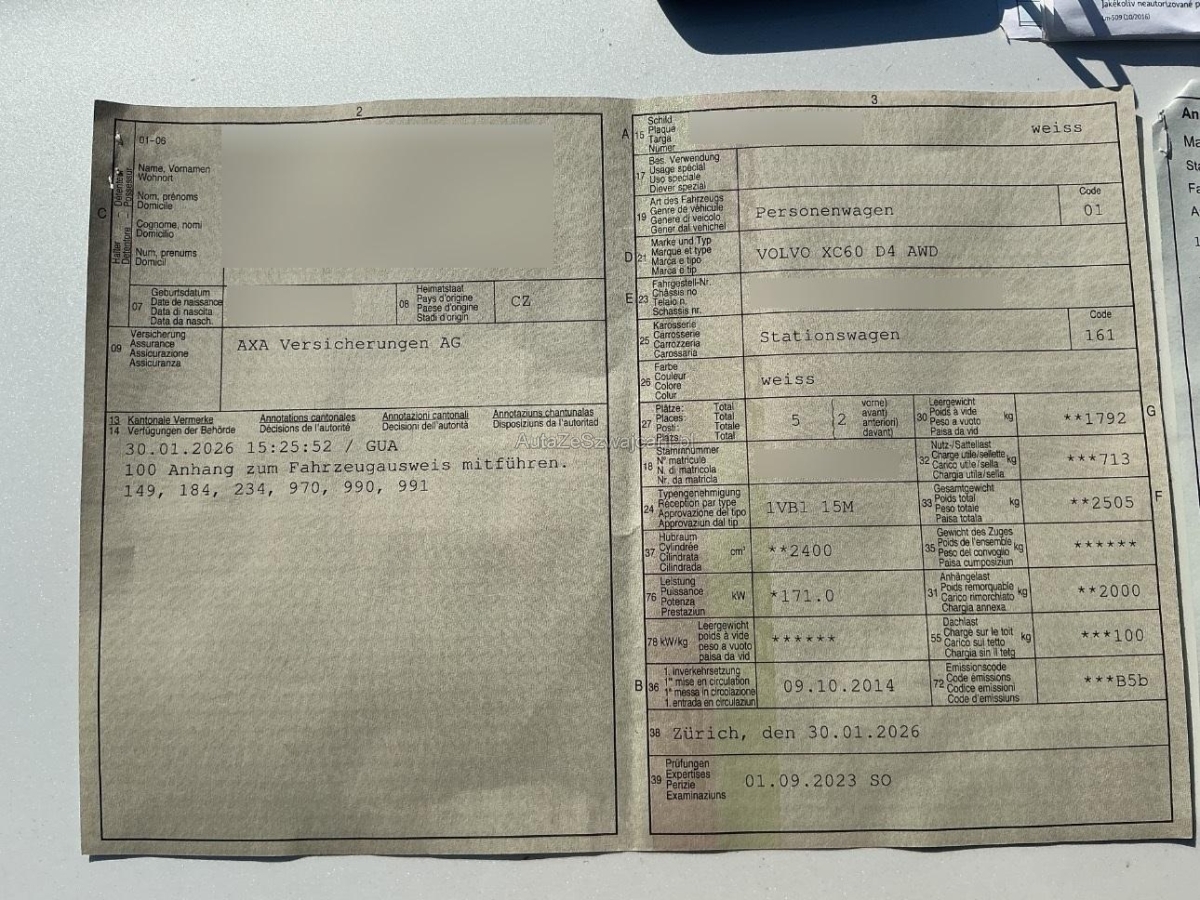 Jakékoliv neautorizované p
un-509 (10/2016)
An
Ma
Sta
Fa
A
2
C
Halter Détenteur
Detentore Possessur
A
01-06
Name, Vornamen
Wohnort
Nom, prénoms
Domicile
Cognome, nomi
Domicilio
Num, prenums
Domicil
07
Geburtsdatum
Date de naissance
Data di nascita
Data da nasch.
08
Heimatstaat
Pays d'origine
Paese d'origine
Stadi d'origin
CZ
09
Versicherung
Assurance
Assicurazione
Assicuranza
AXA Versicherungen AG
13 Kantonale Vermerke Annotations cantonales Annotazioni cantonali Annotaziuns chantunalas
14 Verfügungen der Behörde Décisions de l'autorité Decisioni dell'autorità Disposiziuns da l'autoritad
30.01.2026 15:25:52 / GUA
100 Anhang zum Fahrzeugausweis mitführen.
149, 184, 234, 970, 990, 991
AutaZeSzwajcarii.pl
3
A 15
Schild
Plaque
Targa
Numer
weiss
17
Bes. Verwendung
Usage spécial
Uso speciale
Diever spezial
19
Art des Fahrzeugs
Genre de véhicule
Genere di veicolo
Gener dal vehichel
Personenwagen
Code
01
D 21
Marke und Typ
Marque et type
Marca e tipo
Marca e tip
VOLVO XC60 D4 AWD
E 23
Fahrgestell-Nr.
Châssis no
Telaio n.
Schassis nr.
25
Karosserie
Carrosserie
Carrozzeria
Carossaria
Stationswagen
Code
161
26
Farbe
Couleur
Colore
Colur
weiss
27
Plätze: Total
Places: Total
Posti: Totale
Plazs: Total
5
2
vorne)
avant)
anteriori)
davant)
30
Leergewicht
Poids à vide
Peso a vuoto
Paisa da vid
kg
**1792
G
18
Stammnummer
N° matricule
N. di matricola
Nr. da matricla
32
Nutz-/Sattellast
Charge utile/sellette
Carico utile/sella
Chargia utila/sella
kg
***713
24
Typengenehmigung
Réception par type
Approvazione del tipo
Approvaziun dal tip
1VB1 15M
33
Gesamtgewicht
Poids total
Peso totale
Paisa totala
kg
**2505
F
37
Hubraum
Cylindrée
Cilindrata
Cilindrada
cm³
**2400
35
Gewicht des Zuges
Poids de l'ensemble
Peso del convoglio
Paisa cumposiziun
kg
******
76
Leistung
Puissance
Potenza
Prestaziun
kW
*171.0
31
Anhängelast
Poids remorquable
Carico rimorchiato
Chargia annexa
kg
**2000
78 kW/kg
Leergewicht
poids à vide
peso a vuoto
paisa da vid
******
55
Dachlast
Charge sur le toit
Carico sul tetto
Chargia sin il tetg
kg
***100
B 36
1. Inverkehrsetzung
1re mise en circulation
1a messa in circolazione
1. entrada en circulaziun
09.10.2014
72
Emissionscode
Code émissions
Codice emissioni
Code d'emissiuns
***B5b
38 Zürich, den 30.01.2026
39
Prüfungen
Expertises
Perizie
Examinaziuns
01.09.2023 SO